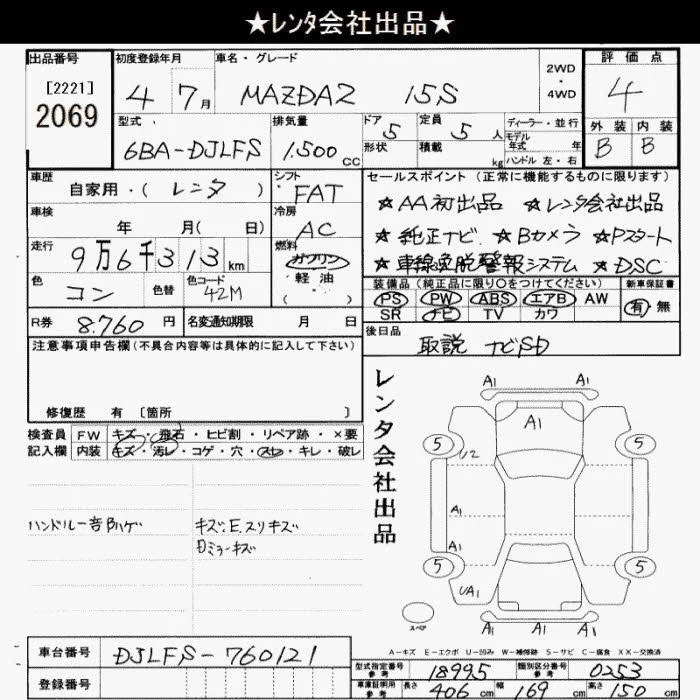 ★レンタ会社出品★
出品番号 初度登録年月 車名・グレード 2WD・4WD 評価点
[2221]
2069
4 7月 MAZDA2 15S 4
型式 排気量 ドア 定員 ディーラー・並行 外装 内装
6BA-DJLFS 1.500cc 5 5人 モデル年式 年 B B
形状 積載 kg ハンドル 左・右
車歴 自家用・(レンタ) シフト FAT
セールスポイント(正常に機能するものに限ります)
☆AA初出品 ☆レンタ会社出品
車検 年 月(日) 冷房 AC
☆純正ナビ ☆Bカメラ ☆Pスタート
走行 9万6千313km 燃料 ガソリン・軽油・( )
☆車線逸脱警報システム ☆DSC
色 コン 色替 色コード 42M
装備品(純正品に限り○をつけてください) 新車保証書
PS PW ABS エアB AW 有・無
SR ナビ TV カワ
R券 8.760円 名変通知期限 月 日
後日品 取説 ナビSD
注意事項申告欄(不具合内容等は具体的に記入して下さい)
修復歴 有 [箇所 ]
検査員記入欄 FW キズ・飛石・ヒビ割・リペア跡・×要
内装 キズ・汚レ・コゲ・穴・スレ・キレ・破レ
レンタ会社出品
A1 A1
A1
5 5
U2
A1
A1
5 5
UA1
A1 A1
スペア
ハンドル一部ハゲ キズ、E、スリキズ
Dミラーキズ
A-キズ E-エクボ U-凹み W-補修跡 S-サビ C-腐食 XX-交換済
車台番号 DJLFS-760121
型式指定番号 参考 18995 類別区分番号 参考 0253
登録番号
車庫証明用 参考 長さ 406cm 幅 169cm 高さ 150cm